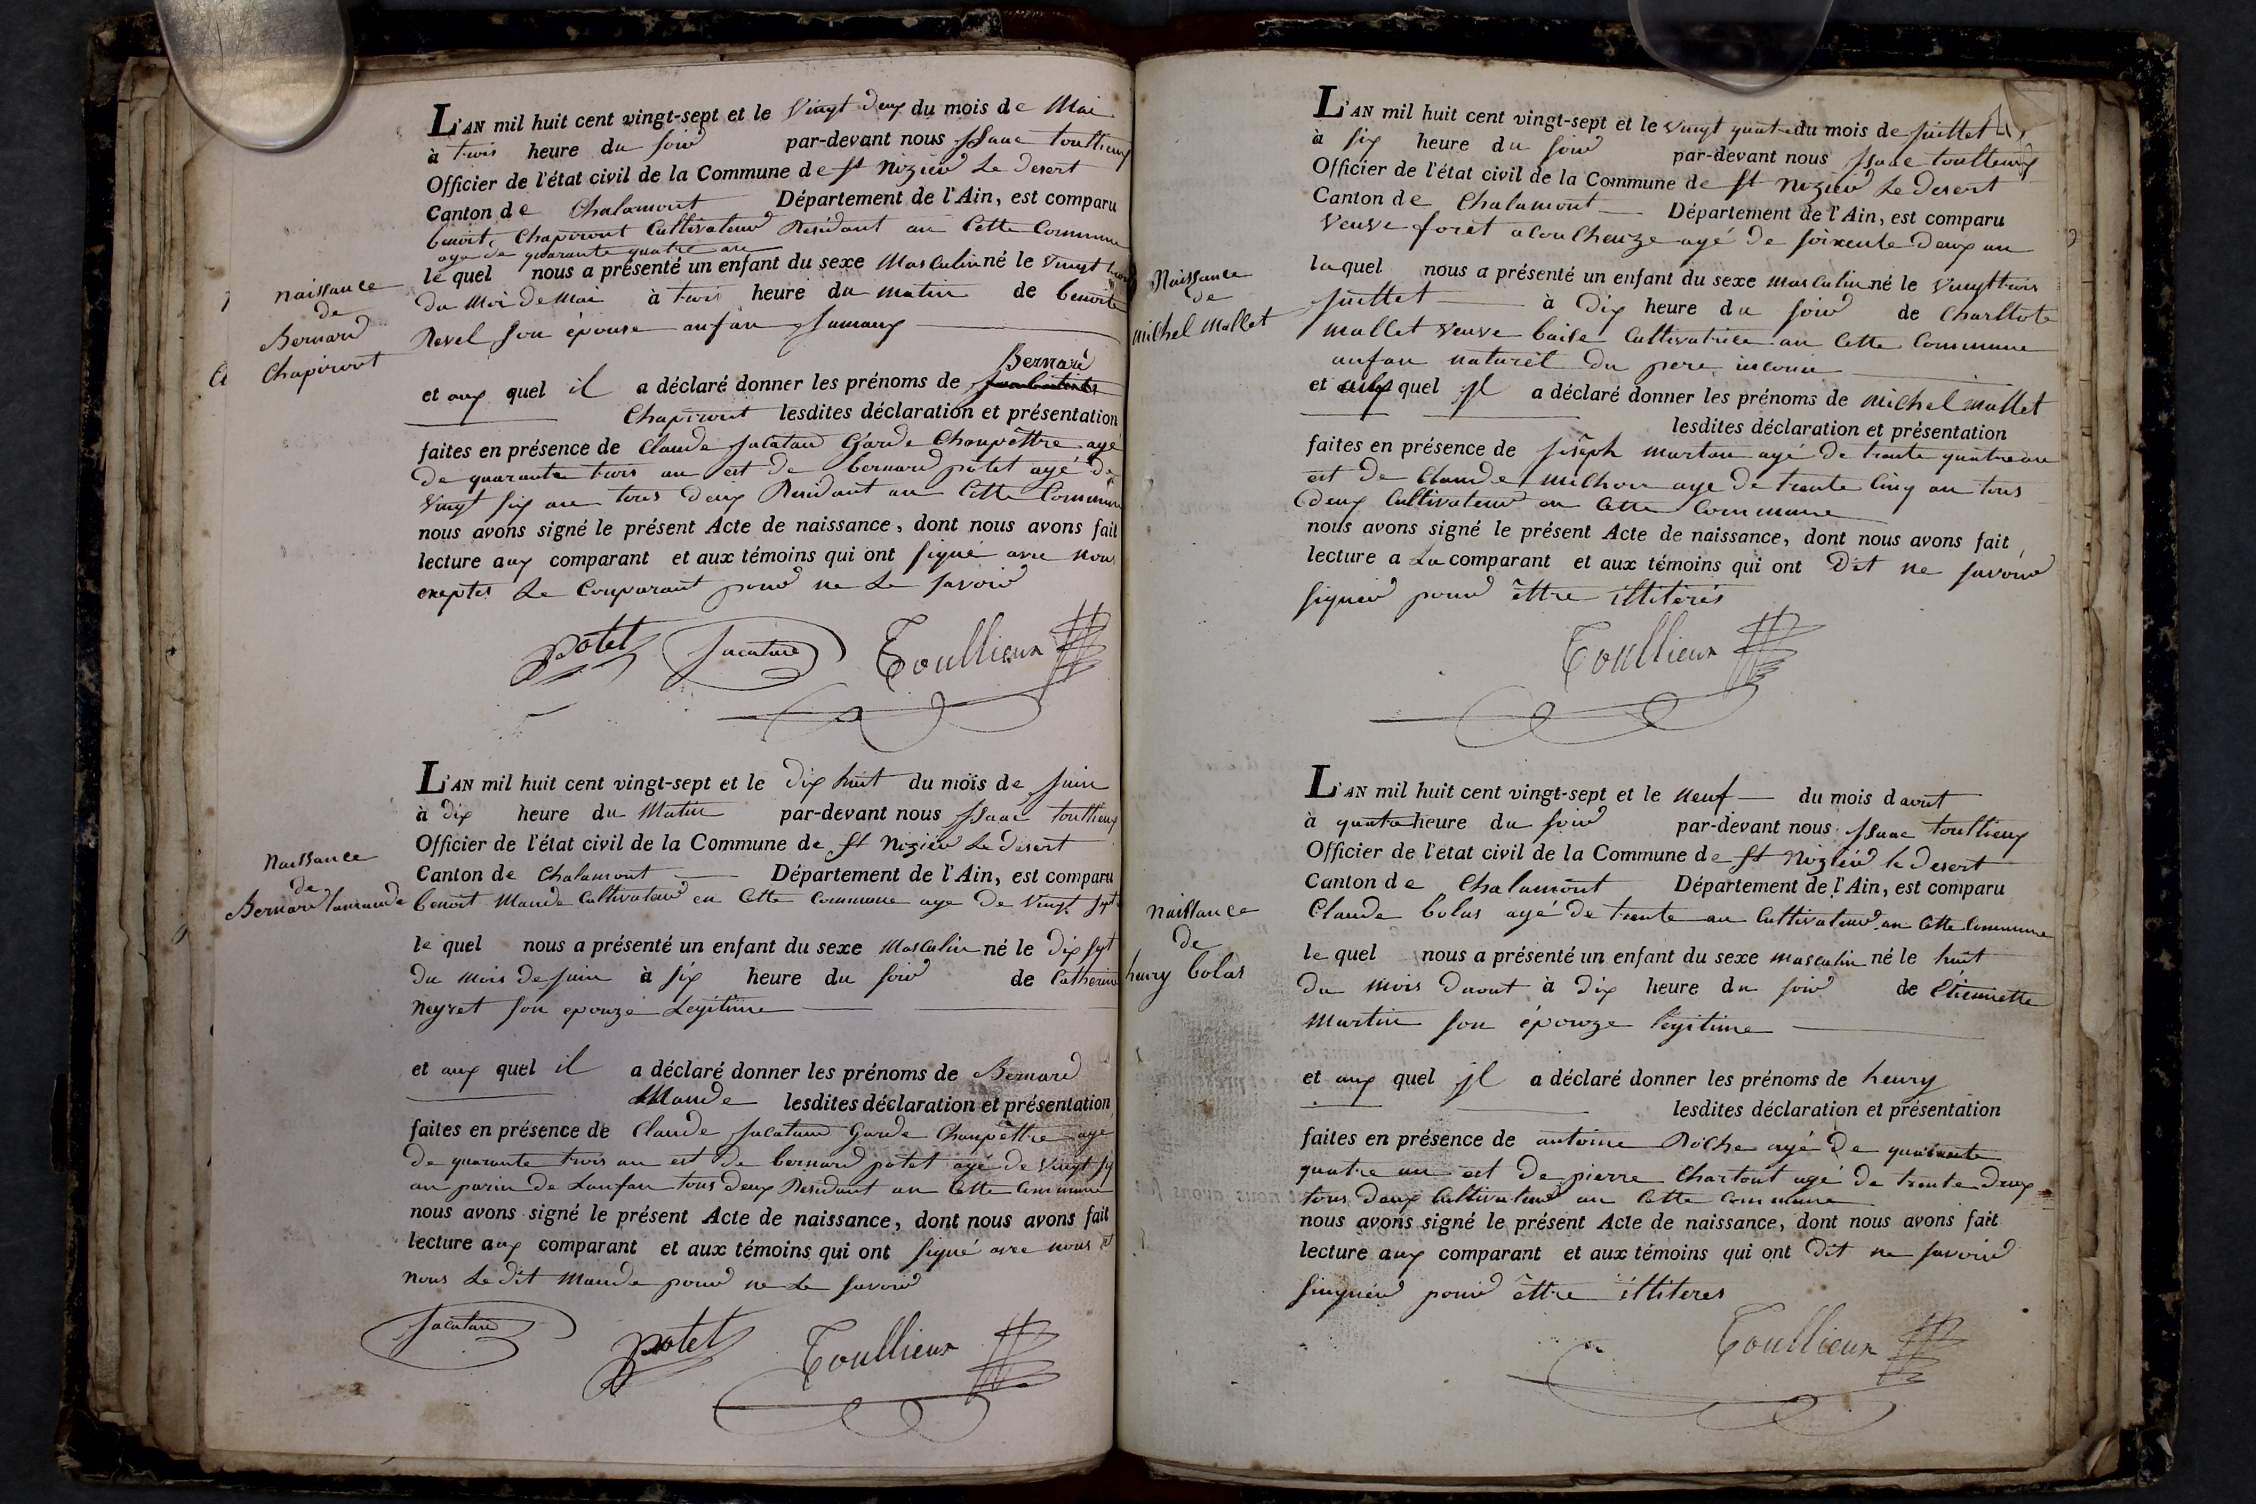 L'AN mil huit cent vingt-sept et le Vingt deux du mois de Mai
à trois heure du soir par-devant nous Isaac toullieux
Officier de l'état civil de la Commune de St Nizier Le desert
Canton de Chalamont Département de l'Ain, est comparu
benoit Chapiront Cultivateur Residant an Cette Commune
age de quarante quatre an
le quel nous a présenté un enfant du sexe Masculin né le Vingt
du Moi de Mai à trois heure du matin de benoite
Revel son épouse anfan
et aux quel il a déclaré donner les prénoms de Bernard
Chapiront lesdites déclaration et présentation
faites en présence de Claude Jacatard Garde Champêttre agé
de quarante trois an est de bernard potet agé de
Vingt six an tous deux Residant an Cette Commune
nous avons signé le présent Acte de naissance, dont nous avons fait
lecture aux comparant et aux témoins qui ont signé avec nous
exeptés Le Comparant pour ne Le savoir
Naissance
de
Bernard
Chapiront
potet Jacatard Toullieux
L'AN mil huit cent vingt-sept et le dix huit du mois de Juin
à dix heure du Matin par-devant nous Isaac toullieux
Officier de l'état civil de la Commune de St Nizier Le desert
Canton de Chalamont Département de l'Ain, est comparu
benoit Mande Cultivateur en Cette Commune age de Vingt sept
le quel nous a présenté un enfant du sexe Masculin né le dix sept
du mois de Juin à six heure du soir de Catherine
Neyret son epouze Legitime
et aux quel il a déclaré donner les prénoms de Bernard
Mande lesdites déclaration et présentation
faites en présence de Claude Jacatard Garde Champêttre age
de quarante trois an est de bernard potet agé de Vingt six
an parin de Lanfan tous deux Residant an Cette Commune
nous avons signé le présent Acte de naissance, dont nous avons fait
lecture aux comparant et aux témoins qui ont signé avec nous et
nous Le dit Mande pour ne Le savoir
Naissance
de
Bernard
Jacatard potet Toullieux
L'AN mil huit cent vingt-sept et le Vingt quatre du mois de Juillet
à six heure du soir par-devant nous Isaac toullieux
Officier de l'état civil de la Commune de St Nizier Le desert
Canton de Chalamont Département de l'Ain, est comparu
Veuve foret acoucheuze agé de soixente deux an
la quel nous a présenté un enfant du sexe masculin né le Vingt trois
Juillet à dix heure du soir de Charllote
Mallet Veuve baise Cultivatrice an Cette Commune
anfan naturel du pere inconu
et aux quel Jl a déclaré donner les prénoms de michel mallet
lesdites déclaration et présentation
faites en présence de Joseph martin agé de trante quatre an
est de Claude michon age de trente Cinq an tous
deux Cultivateur an Cette Commune
nous avons signé le présent Acte de naissance, dont nous avons fait
lecture a La comparant et aux témoins qui ont Dit ne savoir
signer pour êttre illiterés
Naissance
de
michel Mallet
Toullieux
L'AN mil huit cent vingt-sept et le neuf du mois daout
à quatre heure du soir par-devant nous Isaac toullieux
Officier de l'etat civil de la Commune de St Nizier le desert
Canton de Chalamont Département de l'Ain, est comparu
Claude bolas agé de trente an Cultivateur an Cette Commune
le quel nous a présenté un enfant du sexe masculin né le huit
du mois Daout à dix heure du soir de Etiennette
Martin son épouze legitime
et aux quel Jl a déclaré donner les prénoms de henry
lesdites déclaration et présentation
faites en présence de antoine Roche agé de quarante
quatre an est de pierre Chartout agé de trente deux
tous deux Cultivateur an Cette commune
nous avons signé le présent Acte de naissance, dont nous avons fait
lecture aux comparant et aux témoins qui ont dit ne savoir
singnér pour êttre illiteres
Naissance
de
henry bolas
Toullieux